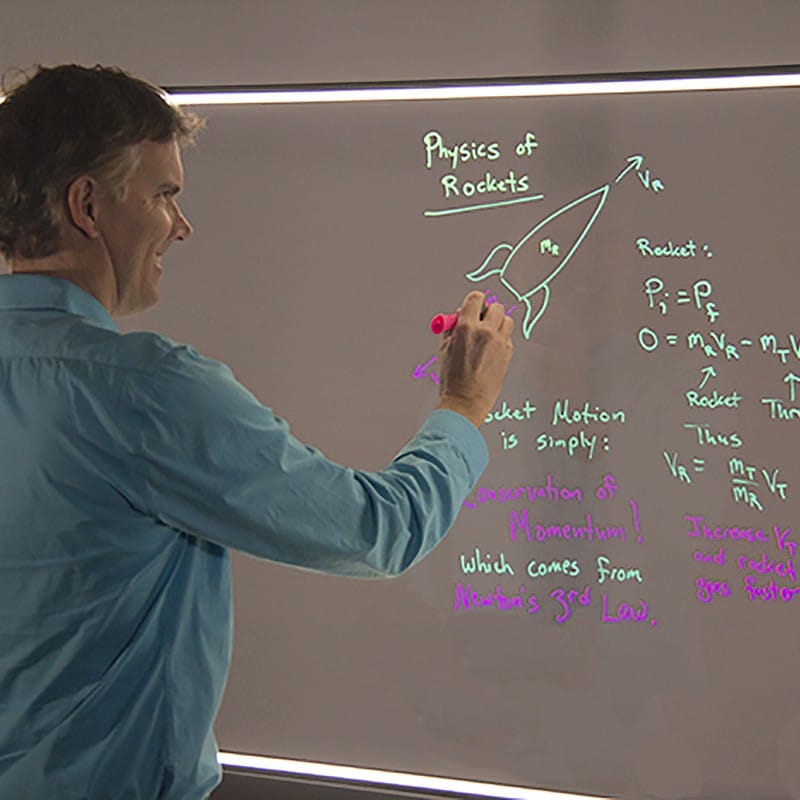 Physics of
Rockets
V_R
m_R
ocket Motion
is simply:
Conservation of
Momentum!
which comes from
Newton's 3rd Law.
Rocket:
P_i = P_f
0 = m_R V_R - m_T V
Rocket Thr
Thus
V_R = m_T/m_R V_T
Increase V_T
and rocket
goes faster